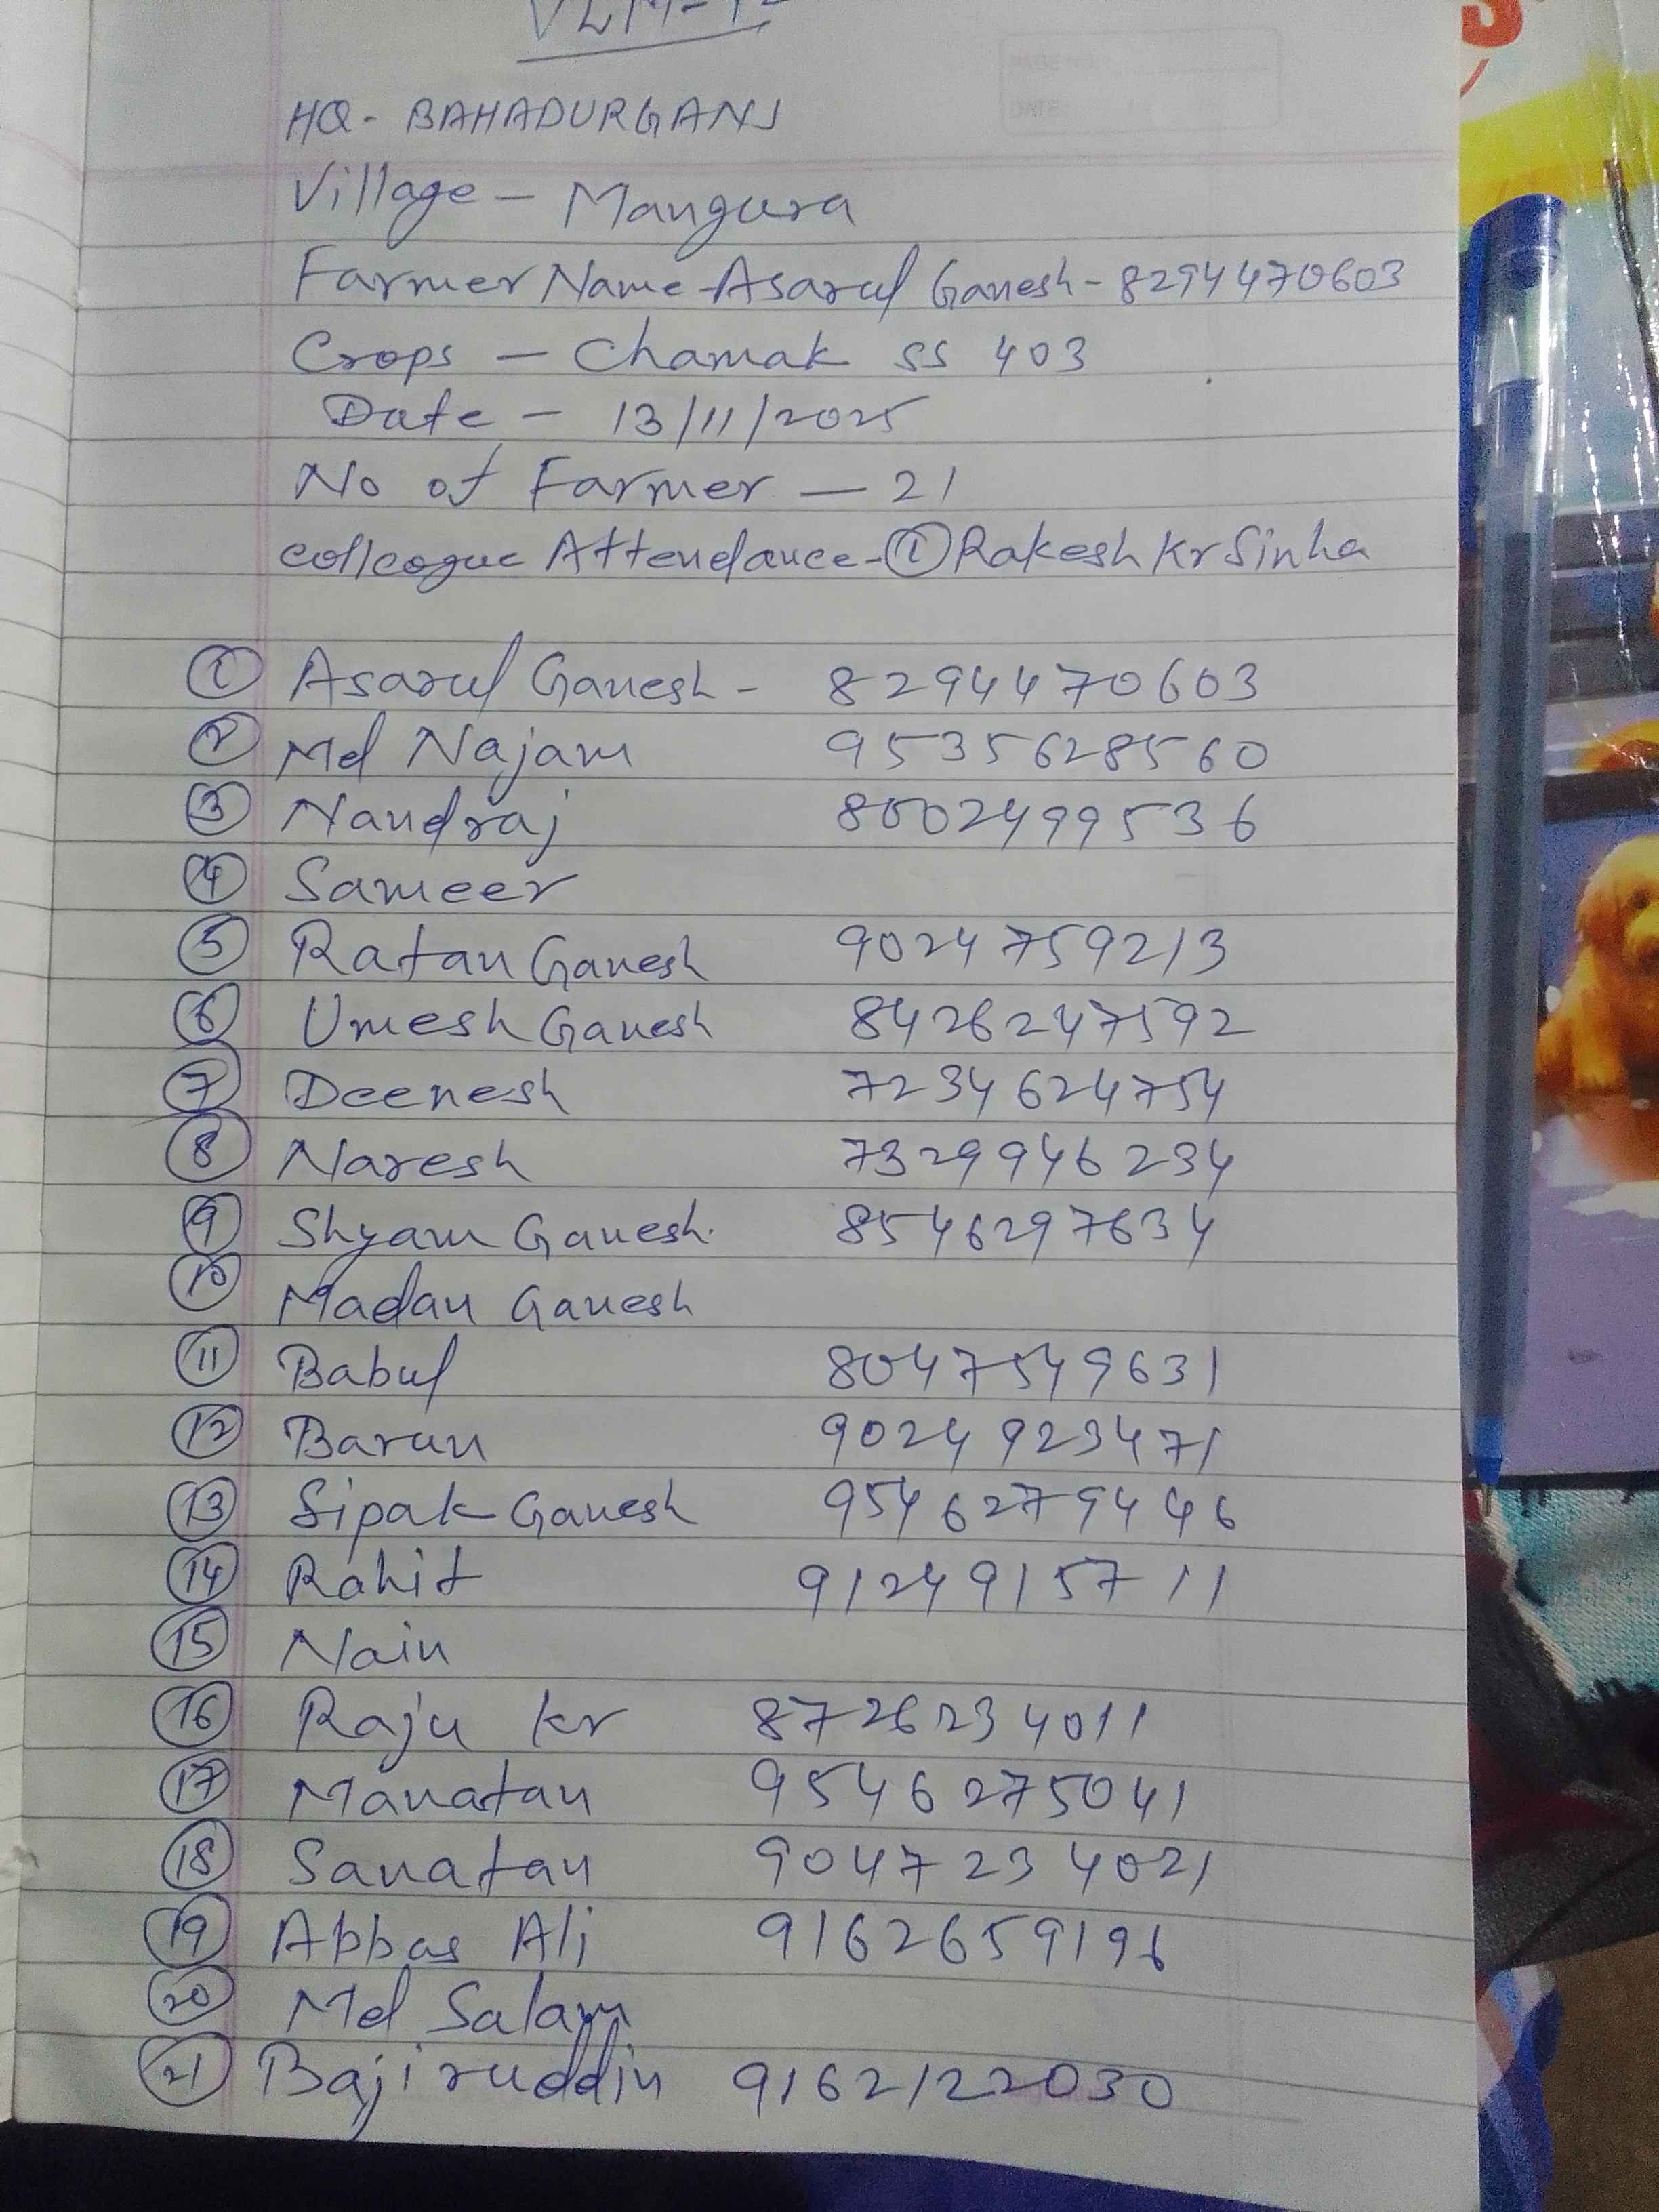 HQ - BAHADURGANJ
Village - Mangura
Farmer Name - Asarul Ganesh - 8294470603
Crops - Chamak SS 403
Date - 13/11/2025
No of Farmer - 21
colleogue Attendance - ① Rakesh Kr Sinha
① Asarul Ganesh - 8294470603
② Md Najam 9535628560
③ Nandraj 8002499536
④ Sameer
⑤ Ratan Ganesh 9024759213
⑥ Umesh Ganesh 8426247592
⑦ Deenesh 7234624754
⑧ Naresh 7329946234
⑨ Shyam Ganesh. 8546297634
⑩ Madan Ganesh
⑪ Babul 8047549631
⑫ Barun 9024923471
⑬ Sipak Ganesh 9546279446
⑭ Rahit 9124915711
⑮ Nain
⑯ Raju kr 8726234011
⑰ Manatan 9546275041
⑱ Sanatan 9047234021
⑲ Abbas Ali 9162659196
⑳ Md Salam
㉑ Bajiruddin 9162122030